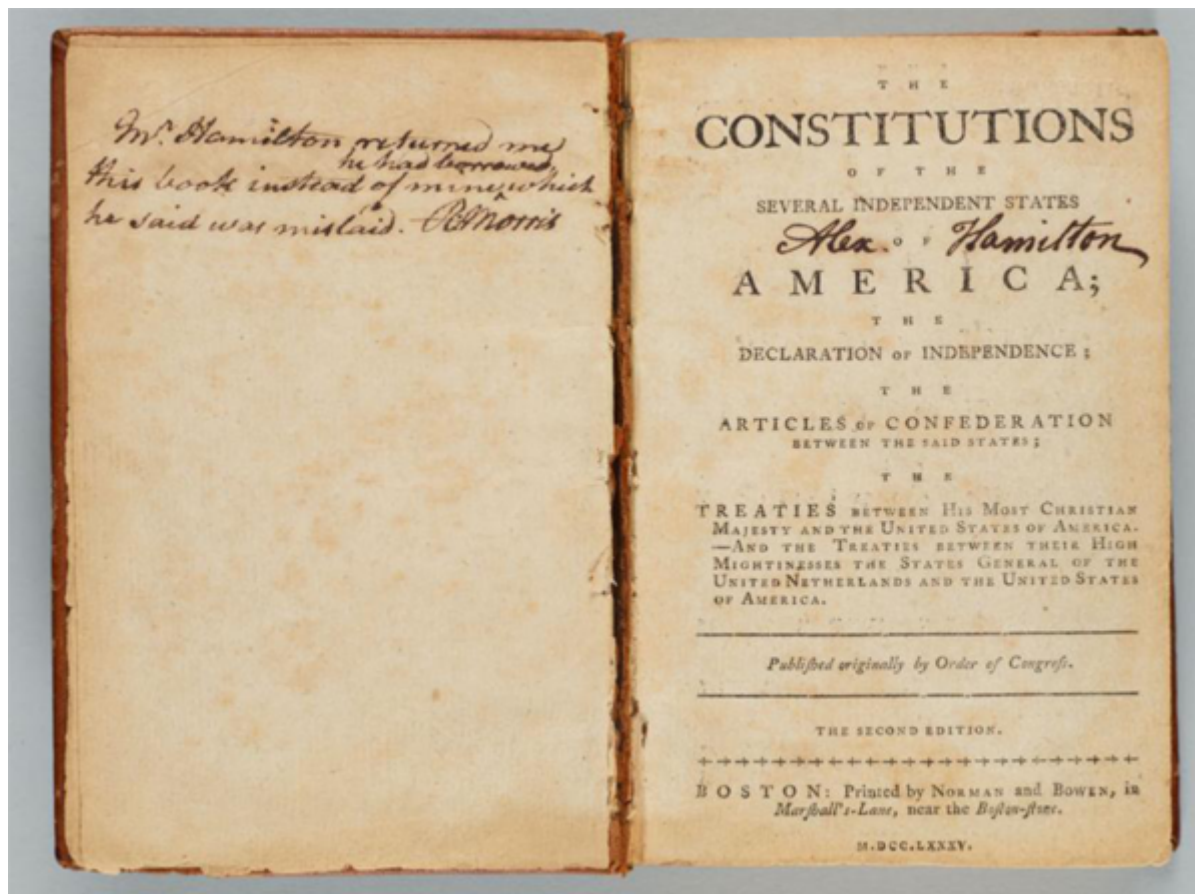 Mr. Hamilton returned me
he had borrowed
this book instead of mine, which
he said was mislaid. RMorris
THE
CONSTITUTIONS
OF THE
SEVERAL INDEPENDENT STATES
Alex. OF Hamilton
AMERICA;
THE
DECLARATION OF INDEPENDENCE;
THE
ARTICLES OF CONFEDERATION
BETWEEN THE SAID STATES;
THE
TREATIES BETWEEN HIS MOST CHRISTIAN
MAJESTY AND THE UNITED STATES OF AMERICA.
—AND THE TREATIES BETWEEN THEIR HIGH
MIGHTINESSES THE STATES GENERAL OF THE
UNITED NETHERLANDS AND THE UNITED STATES
OF AMERICA.
Publiſhed originally by Order of Congreſs.
THE SECOND EDITION.
BOSTON: Printed by NORMAN and BOWEN, in
Marſhall's-Lane, near the Boſton-ſtone.
M.DCC.LXXXV.